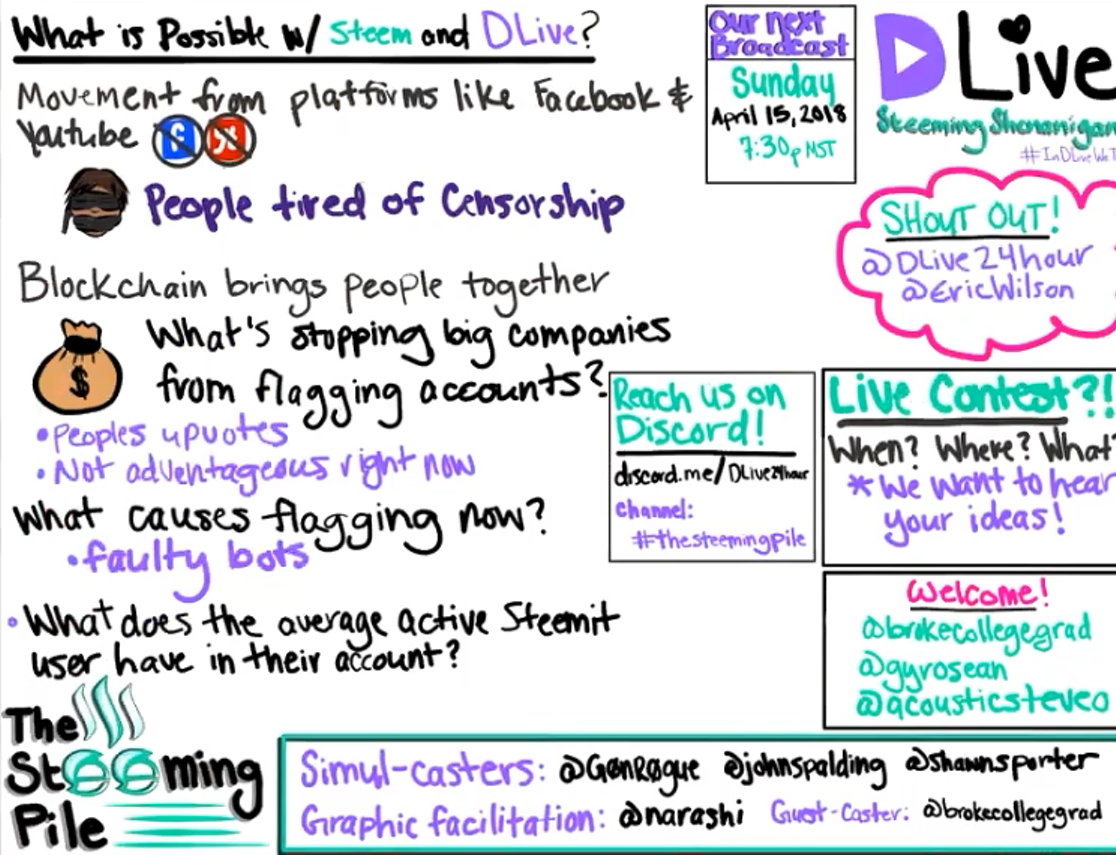 What is Possible w/ Steem and DLive?
Movement from platforms like Facebook &
Youtube
People tired of Censorship
Blockchain brings people together
What's stopping big companies
from flagging accounts?
$
•Peoples upvotes
•Not advantageous right now
What causes flagging now?
•faulty bots
•What does the average active Steemit
user have in their account?
The
Steeming
Pile
Our next
Broadcast
Sunday
April 15, 2018
7:30p MST
DLive
Steeming Shenanigan
#InDLiveWeT
SHOUT OUT!
@DLive24hour
@EricWilson
Reach us on
Discord!
discord.me/DLive24hour
channel:
#thesteemingpile
Live Contest?!
When? Where? What?
*We want to hear
your ideas!
Welcome!
@brokecollegegrad
@gyrosean
@acousticsteveo
Simul-casters: @GønRøgue @johnspalding @shawnsporter
Graphic facilitation: @narashi Guest-Caster: @brokecollegegrad